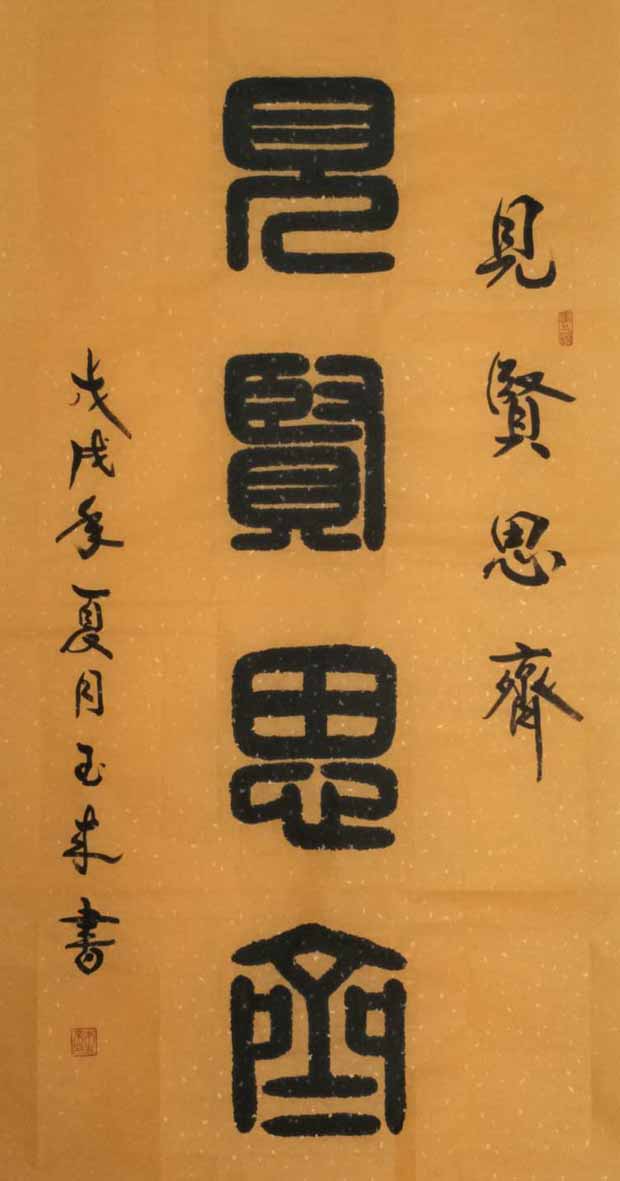 見賢思齊
見賢思齊
戊戌年夏月玉来書